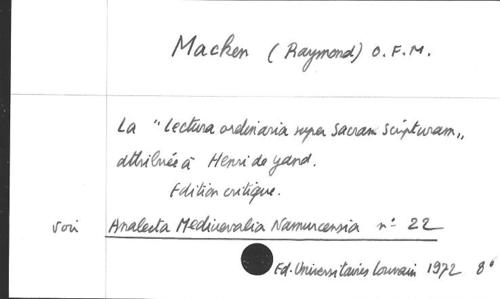 Macken (Raymond) O.F.M.
La "Lectura ordinaria super Sacram Scripturam"
attribuée à Henri de Gand.
Edition critique.
voir Analecta Mediaevalia Namurcensia n° 22
Ed. Universitaires Louvain 1972 8°